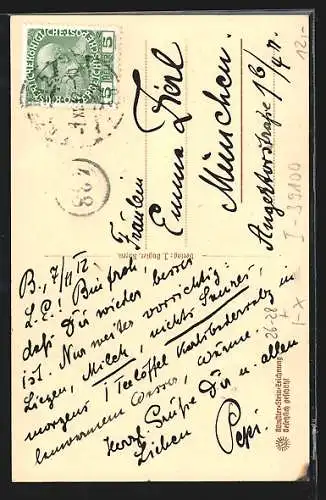 KAISERLICHE KÖNIGLICHE ÖSTERREICHISCHE POST
5 5
HELLER
238
Fräulein
Emma Dierl
München.
Angertorstraße 1c/4 r.
12,-
I-S9100
26-28
+
I-X
B., 7/XI 12
L. E.! Bin froh,
daß Dir wieder besser
ist. Nur weiter vorsichtig:
Liegen, Milch, nichts Saures,
morgens 1 Teelöffel Karlsbadersalz in
lauwarmem Wasser, Wärme.
Herzl. Grüße Dir u. allen
Lieben Pepi.
Verlag: J.
Künstler-Stein-Zeichnung
Gesetzlich geschützt